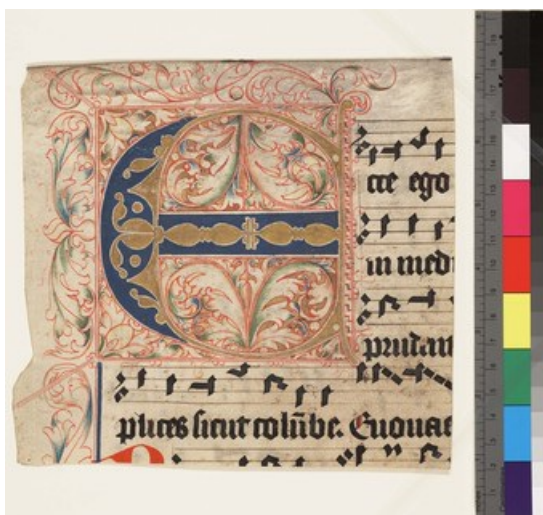 Ecce ego
in med
pruden
plices sicut colūbe. Euouae